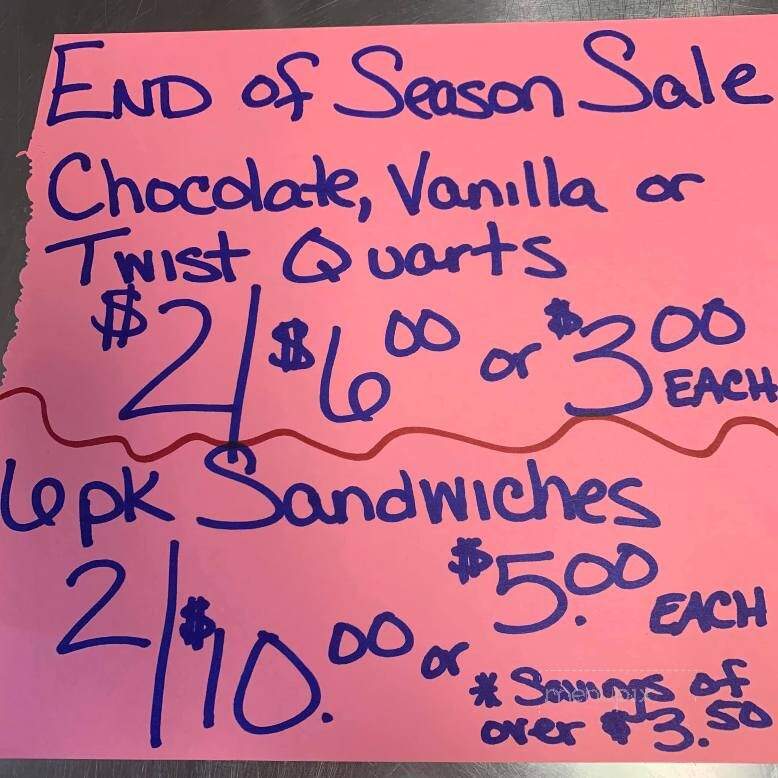 END of Season Sale
Chocolate, Vanilla or
Twist Quarts
$2/$6.00 or $3.00 EACH
6pk Sandwiches
2/$10.00 or $5.00 EACH
* Savings of
over $3.50
menupix